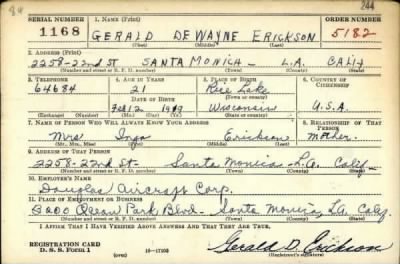 244
SERIAL NUMBER 1. NAME (Print) ORDER NUMBER
1168 GERALD DEWAYNE ERICKSON 5182
(First) (Middle) (Last)
2. ADDRESS (Print)
2258-22nd ST SANTA MONICA - L.A. CALIF
(Number and street or R. F. D. number) (Town) (County) (State)
3. TELEPHONE 4. AGE IN YEARS 5. PLACE OF BIRTH 6. COUNTRY OF CITIZENSHIP
64684 21 Rice Lake
DATE OF BIRTH (Town or county)
Feb 12 1919 Wisconsin U.S.A.
(Exchange) (Number) (Mo.) (Day) (Yr.) (State or country)
7. NAME OF PERSON WHO WILL ALWAYS KNOW YOUR ADDRESS 8. RELATIONSHIP OF THAT PERSON
Mrs Inga Erickson Mother.
(Mr., Mrs., Miss) (First) (Middle) (Last)
9. ADDRESS OF THAT PERSON
2258-22nd St- Santa Monica - L.A. Calif-
(Number and street or R. F. D. number) (Town) (County) (State)
10. EMPLOYER'S NAME
Douglas Aircraft Corp.
11. PLACE OF EMPLOYMENT OR BUSINESS
3000 Ocean Park Blvd- Santa Monica, LA. Calif.
(Number and street or R. F. D. number) (Town) (County) (State)
I AFFIRM THAT I HAVE VERIFIED ABOVE ANSWERS AND THAT THEY ARE TRUE.
REGISTRATION CARD
D. S. S. Form 1 (over) 16-17105 Gerald D. Erickson
(Registrant's signature)